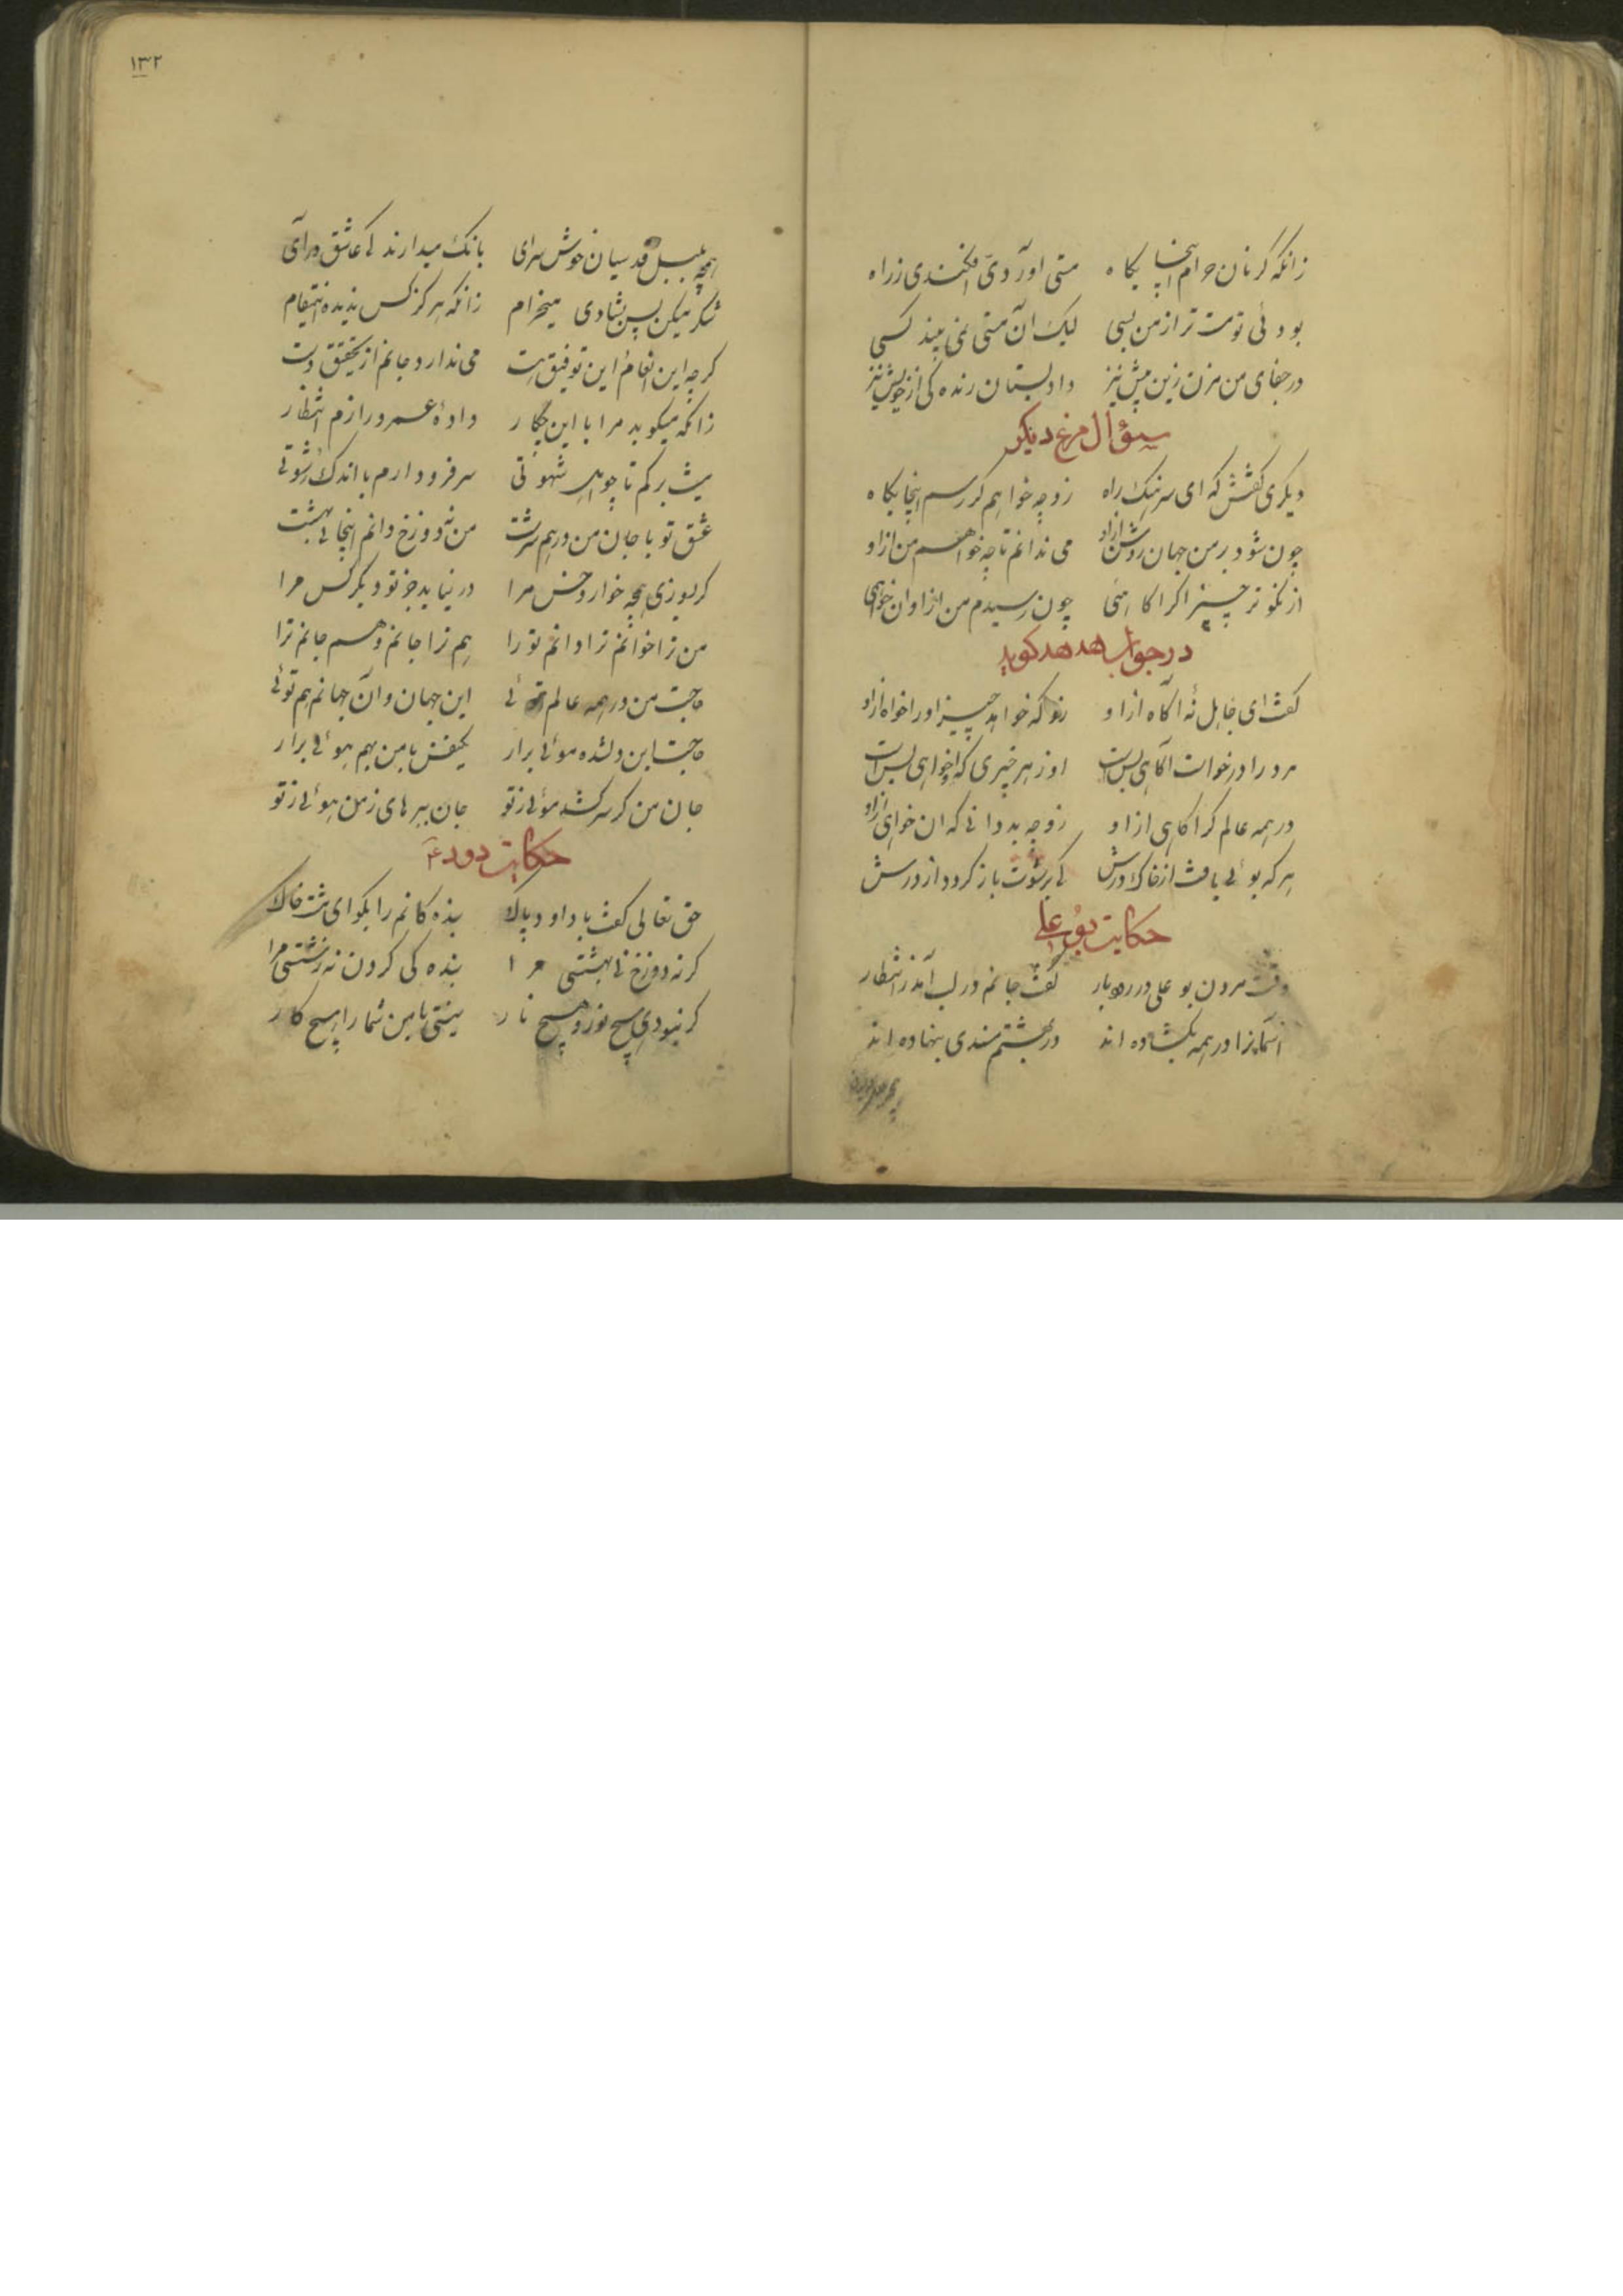 زانکه کر نان حرام اینجایکاه متی اوردی افکندی زراه
بودئی تو مست تر از من بسی لیک آن مستی نمی بیند کسی
در جفای من مزن زین پیش نیز داد بستان رنده کی از خویش نیز
سؤال مرغ دیکر
دیکری کفتش که ای سرهنک راه زو چه خواهم کر رسم اینجایکاه
چون شود بر من جهان روشن ازاو می ندانم تا چه خواهم من ازاو
از نکوتر چیز اکر اکاهمی چون رسیدم من ازاو ان خواهمی
در جواب هدهد کوید
کفت ای جاهل نهٔ اکاه ازاو زو که خواهد چیز اورا خواه ازاو
مرد را درخواست اکاهی بس است او زهر چیزی که خواهی بس است
در همه عالم کر اکاهی ازاو زو چه به دانی که ان خواهی ازاو
هر که بوئی یافت از خاک درش کی برشوت باز کردد از درش
حکایت بوعلی
وقت مردن بوعلی در رودبار کفت جانم در لب امد ز انتظار
اسمانرا در همه بکشاده اند در بهشتم مسندی بنهاده اند
۱۳۲
همچه بلبل قدسیان خوش سرای بانک میدارند کی عاشق درای
شکر میکن پس بشادی میخرام زانکه هرکز کس ندیده اینمقام
کرچه این انعام این توفیق هست می ندارد جانم از تحقیق دست
زانکه میکوید مرا با این چکار دادهٔ عمر درازم انتظار
نیست برکم تا چو اهل شهوتی سر فرود ارم باندک رشوتی
عشق تو با جان من درهم سرشت من نه دوزخ دانم اینجا نی بهشت
کر بسوزی همچه خوار و خس مرا در نیاید جز تو دیکر کس مرا
من ترا خوانم ترا دانم تو را هم ترا جانم و هم جانم ترا
حاجت من در همه عالم توئی این جهان و ان جهانم هم توئی
حاجت این دلشده موئی برار یکنفس با من بهم هوئی برار
جان من کر سر کشد موئی زتو جان ببر های زمن هوئی زتو
حکایت دود ع
حق تعالی کفت با داود پاک بنده کانم را بکو ای مشت خاک
کر نه دوزخ نی بهشتی مرا بنده کی کردن نه زشتستی مرا
کر نبودی هیچ نور و هیچ نار نیستی با من شما را هیچ کار